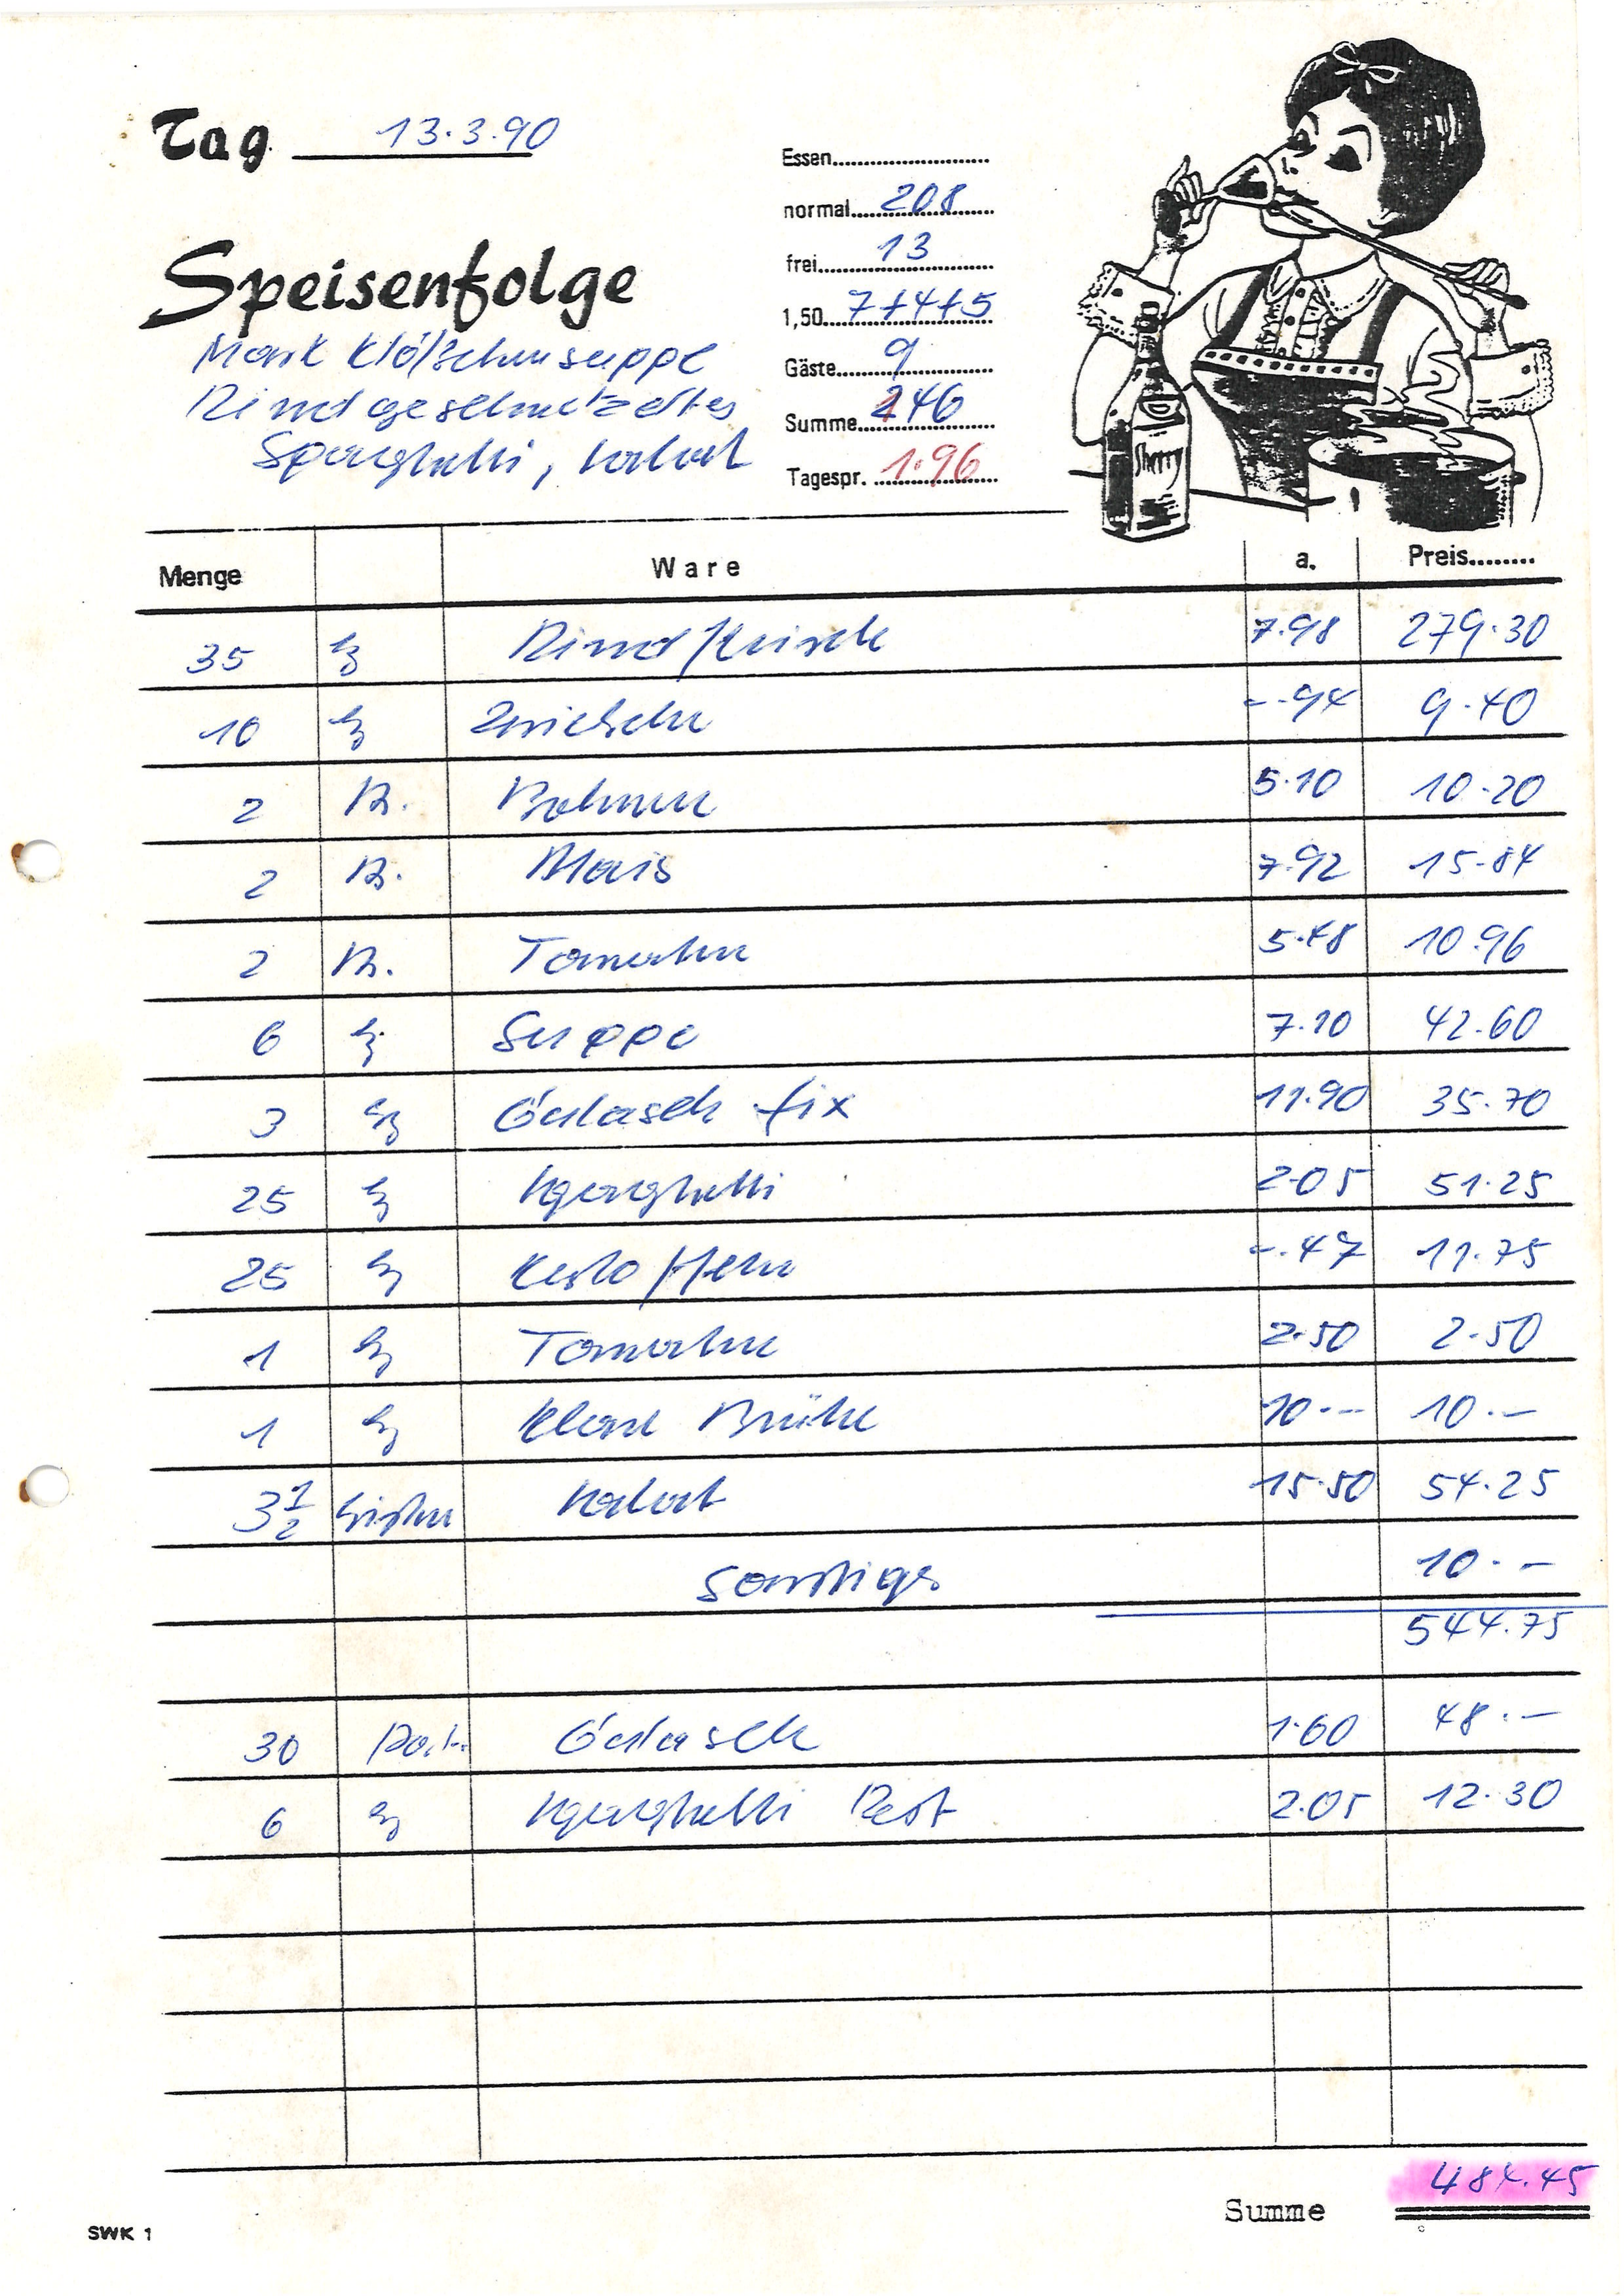 Tag 13.3.90
Essen
normal 208
frei 13
Speisenfolge
1,50 7+4+5
Mark Klößchensuppe
Gäste 9
Rindgeschnetzeltes
Summe 246
Spaghetti, Salat
Tagespr. 1.96
Sherry
Menge Ware a. Preis
35 kg Rindfleisch 7.98 279.30
10 kg Zwiebeln -.94 9.40
2 B. Bohnen 5.10 10.20
2 B. Mais 7.92 15.84
2 B. Tomaten 5.48 10.96
6 kg Suppe 7.10 42.60
3 kg Gulasch fix 11.90 35.70
25 kg Spaghetti 2.05 51.25
25 kg Kartoffeln -.47 11.75
1 kg Tomaten 2.50 2.50
1 kg Klare Brühe 10.-- 10.--
3 1/2 Kisten Salat 15.50 54.25
Sonstiges 10.--
544.75
30 Port. Gulasch 1.60 48.--
6 kg Spaghetti Rest 2.05 12.30
Summe 484.45
SWK 1